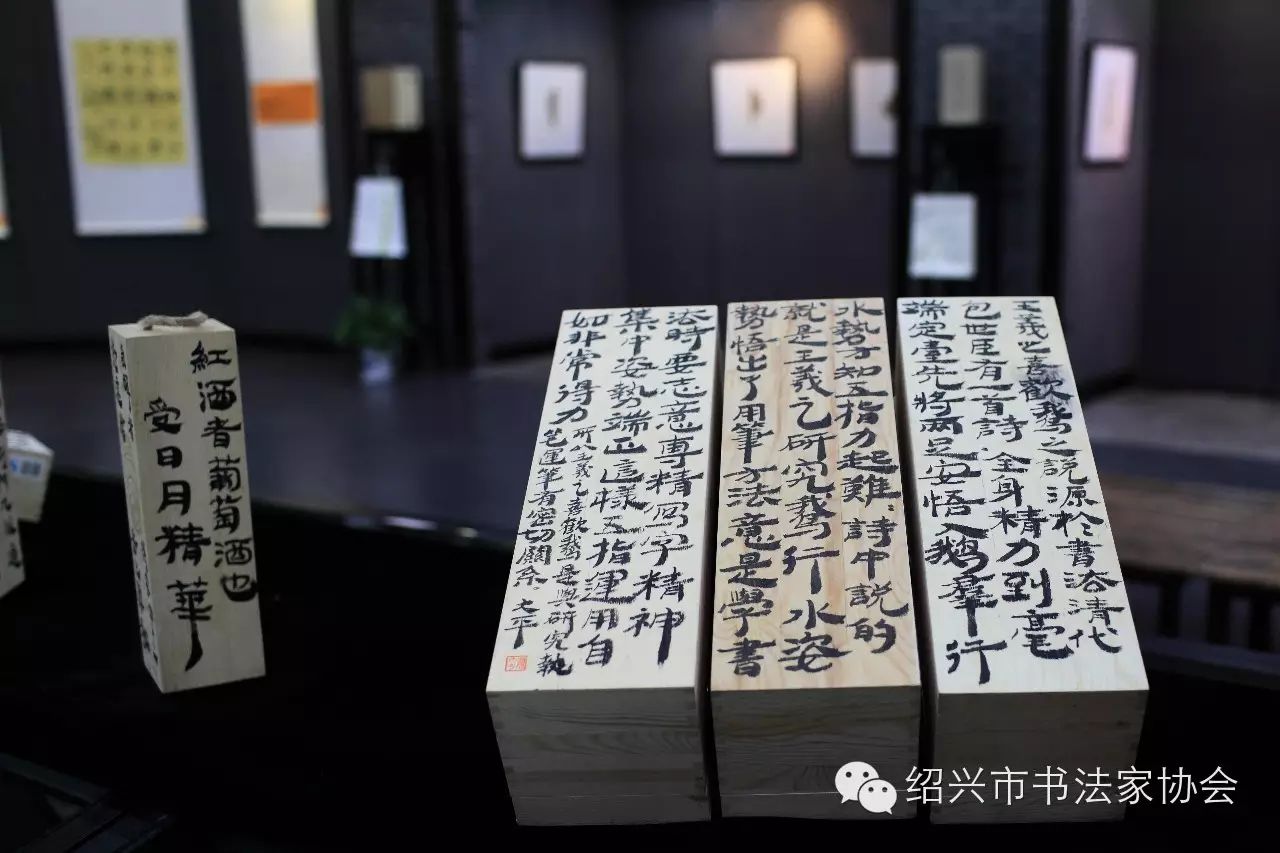 王羲之喜歡鵝之說源於書法清代
包世臣有一首詩全身精力到毫
端定臺先將兩足安悟入鵝羣行
水勢方知五指力起難:詩中說的
就是王羲之研究鵝行水姿
勢悟出了用筆方法意是學書
法時要志意專精寫字精神
集中姿勢端正這樣五指運用自
如非常得力
所以王羲之喜歡鵝是與研究執
笔運筆有密切關系 大平
紅酒者葡萄酒也
受日月精華
绍兴市书法家协会